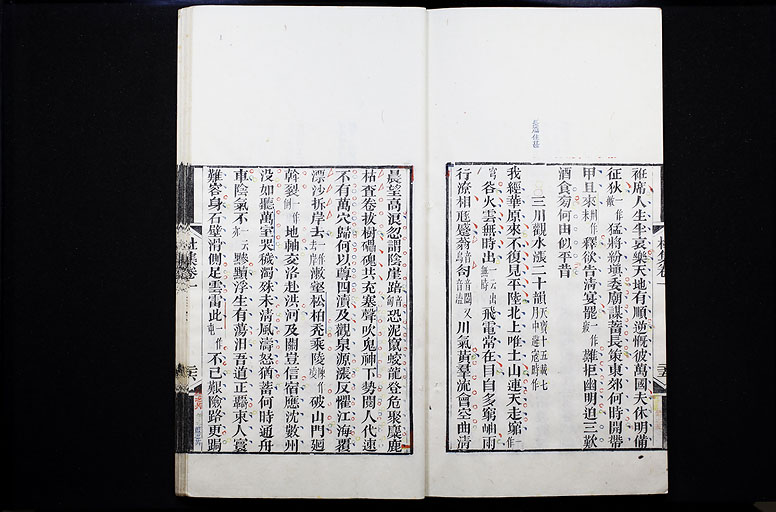 袵席人生半哀樂天地有順逆慨彼萬國夫休明備
征狄一作猛將紛填委廟謀蓄長策東郊何時開帶
甲且來釋欲告清宴罷一作難拒幽明迫三歎
酒食旁何由似平昔
三川觀水漲二十韻天寶十五載七月中避寇時作
我經華原來不復見平陸北上唯土山連天走窮一作
谷火雲無時出一云出無時飛電常在目自多窮岫雨
行潦相豗蹙蓊匌又川氣黃羣流會空曲清
杜集卷一
晨望高浪忽謂陰崖踣恐泥竄蛟龍登危聚麋鹿
枯查卷拔樹礧磈共充塞聲吹鬼神下勢閱人代速
不有萬穴歸何以尊四瀆及觀泉源漲反懼江海覆
漂沙拆岸去漱壑松柏禿乘陵一作破山門迴
斡裂一作地軸交洛赴洪河及關豈信宿應沈數州
沒如聽萬室哭穢濁殊未清風濤怒猶蓄何時通舟
車陰氣不一云黪黷浮生有蕩汩吾道正羈束人寰
難容身石壁滑側足雲雷此一作不已艱險路更跼
杜集卷一